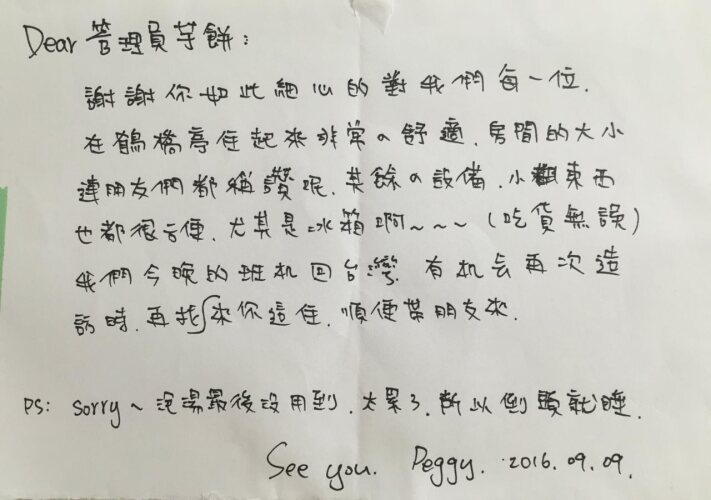 Dear 管理員芋餅：
謝謝你如此細心的對我們每一位.
在鶴橋亭住起來非常の舒適.房間的大小
連朋友們都稱讚呢.其餘の設備.小觀東西
也都很方便.尤其是冰箱啊~~~（吃货無誤）
我們今晚的班机回台灣.有机会再次造
訪時.再找來你這住.順便帶朋友來.
PS: sorry~泡湯最後没用到.太累了.所以倒頭就睡.
See you. Peggy. 2016.09.09.